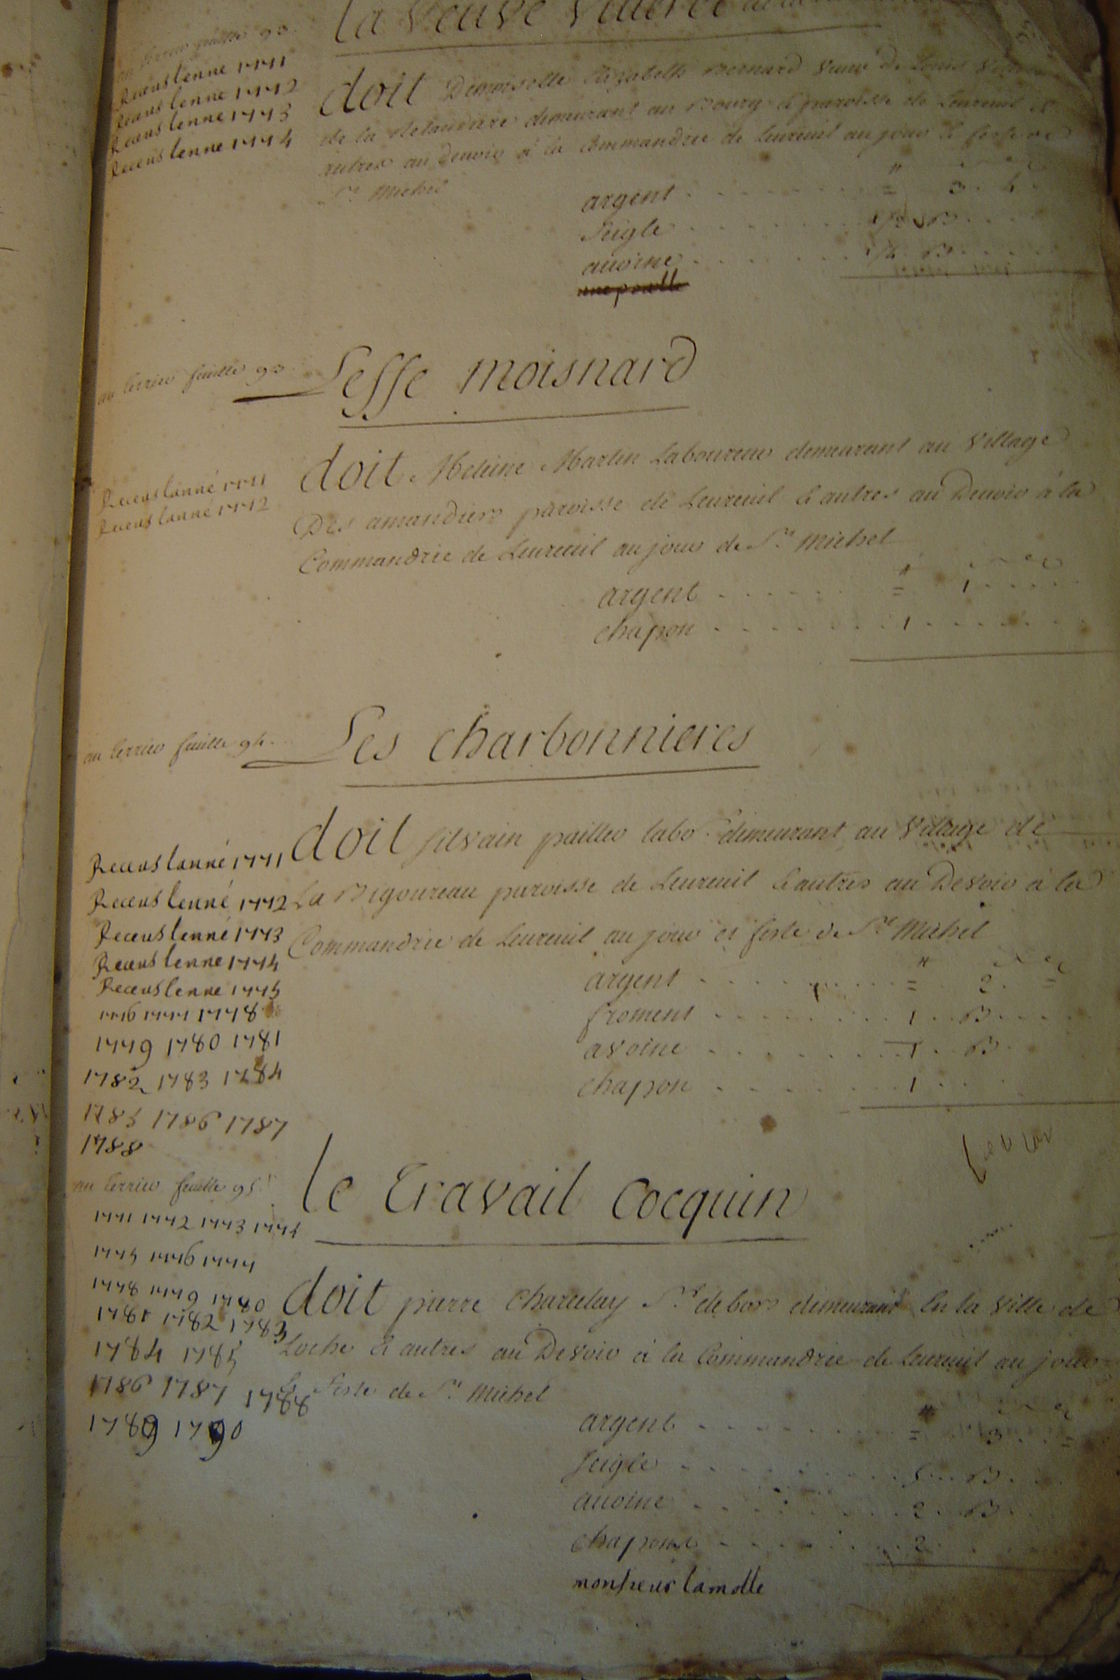 la veuve
au terrier feuille 93
Receus lenne 1771
Receus lenne 1772
Receus lenne 1773
Receus lenne 1774
doit Demoiselle Elizabeth Bernard veuve de Louis
de la demeurant au Bourg & paroisse de Leureuil &
autres au Devoir à la Commandrie de Leureuil au jour & feste de
St Michel
argent = 3
Seigle B
avoine B
une poulle
au terrier feuille 93
Lesse moisnard
Receus lanné 1771
Receus lanné 1772
doit Martin Laboureur demeurant au Village
Des amandiers paroisse de Leureuil & autres au Devoir à la
Commandrie de Leureuil au jour de St Michel
argent = 1
chapon 1
au terrier feuille 94
Les charbonnieres
Receus lanné 1771
Receus lenné 1772
Receus lenné 1773
Receus lenne 1774
Receus lenne 1775
1776 1777 1778
1779 1780 1781
1782 1783 1784
1785 1786 1787
1788
doit silvain pailler labr demeurant au Village de
La Bigoureau paroisse de Leureuil & autres au Devoir à la
Commandrie de Leureuil au jour et feste de St Michel
argent = 2 =
froment 1 B
avoine 1 B
chapon 1
au terrier feuille 95
le travail Cocquin
1771 1772 1773 1774
1775 1776 1777
1778 1779 1780
1781 1782 1783
1784 1785
1786 1787 1788
1789 1790
doit pierre Charcelay Sr debors demeurant en la Ville de
Loche & autres au Devoir à la Commandrie de Leureuil au jour
& feste de St Michel
argent = 3 =
Seigle 5 B
avoine 2 B
chapons 2
monsieur lamotte